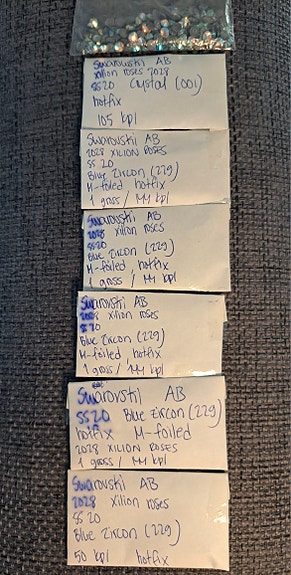 Swarovski AB
xilion roses 2028
SS20 Crystal (001)
hotfix
105 kpl
Swarovski AB
2028 XILION ROSES
SS 20
Blue Zircon (229)
M-foiled hotfix
1 gross / 144 kpl
Swarovski AB
2028 xilion roses
SS20
Blue Zircon (229)
M-foiled, hotfix
1 gross / 144 kpl
Swarovski AB
2028 xilion roses
SS 20
Blue Zircon (229)
M-foiled, hotfix
1 gross / 144 kpl
Swarovski AB
SS20 Blue Zircon (229)
hotfix M-foiled
2028 XILION ROSES
1 gross / 144 kpl
Swarovski AB
2028 xilion roses
SS 20
Blue Zircon (229)
50 kpl hotfix